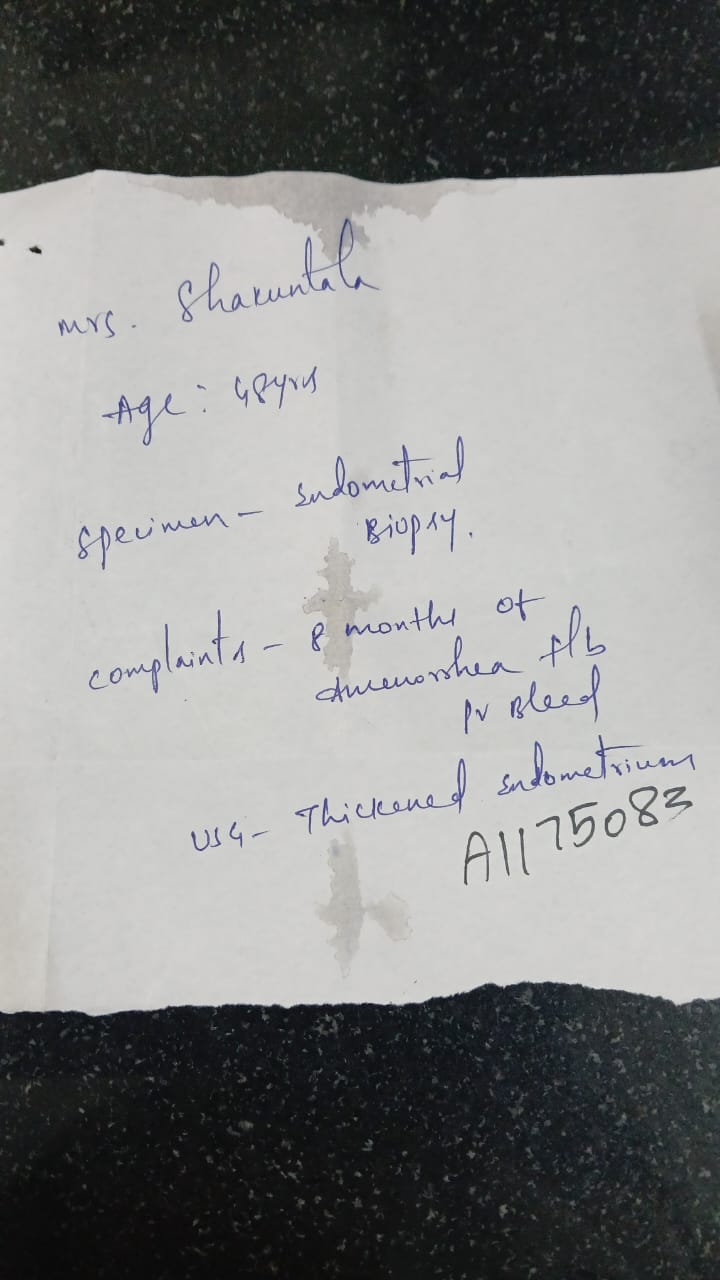 Mrs. Shakuntala
Age: 48yrs
Specimen - Endometrial
Biopsy.
Complaints - 8 months of
Amenorrhea f/b
PV Bleed
USG - Thickened Endometrium
A1175083